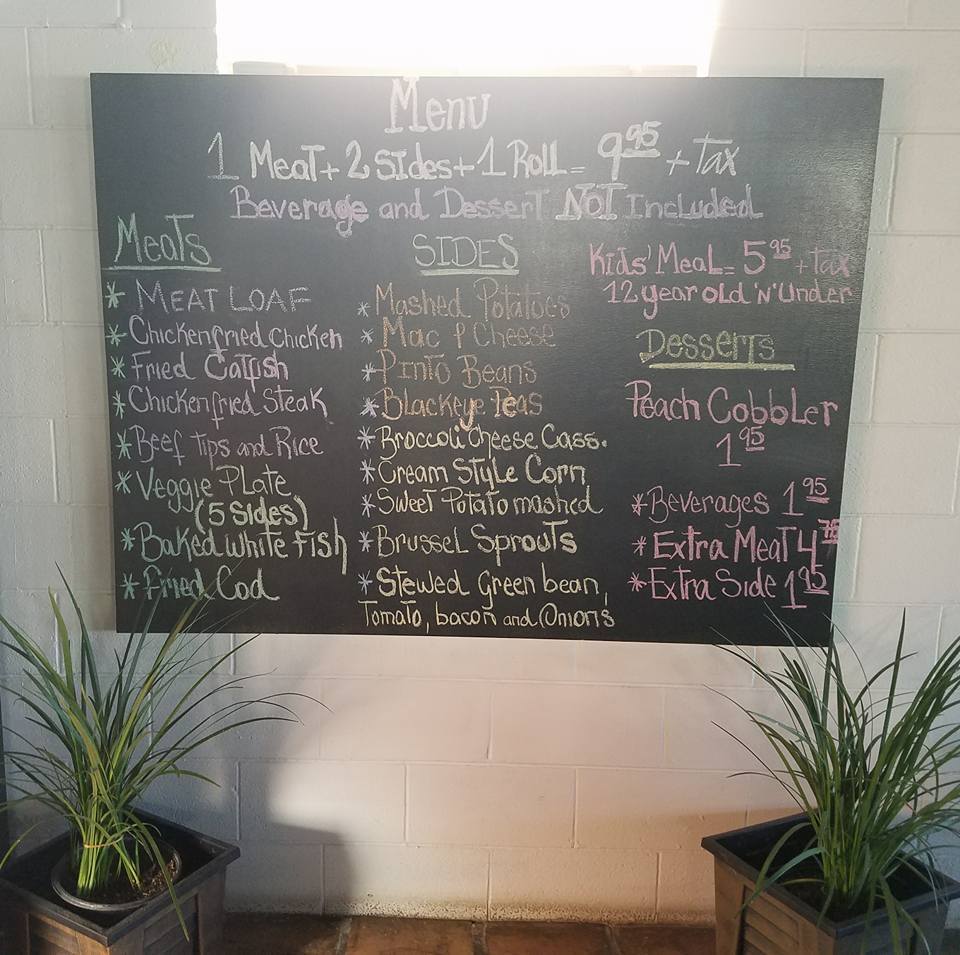 Menu
1 Meat + 2 Sides + 1 Roll = 9.95 + Tax
Beverage and Dessert NOT Included
Meats
* MEAT LOAF
* Chickenfried Chicken
* Fried Catfish
* Chickenfried Steak
* Beef Tips and Rice
* Veggie Plate
(5 Sides)
* Baked White Fish
* Fried Cod
SIDES
* Mashed Potatoes
* Mac & Cheese
* Pinto Beans
* Blackeye Peas
* Broccoli Cheese Cass.
* Cream Style Corn
* Sweet Potato mashed
* Brussel Sprouts
* Stewed Green bean,
Tomato, bacon and Onions
Kids' Meal = 5.95 + Tax
12 year old 'N' Under
Desserts
Peach Cobbler
1.95
* Beverages 1.95
* Extra Meat 4.75
* Extra Side 1.95